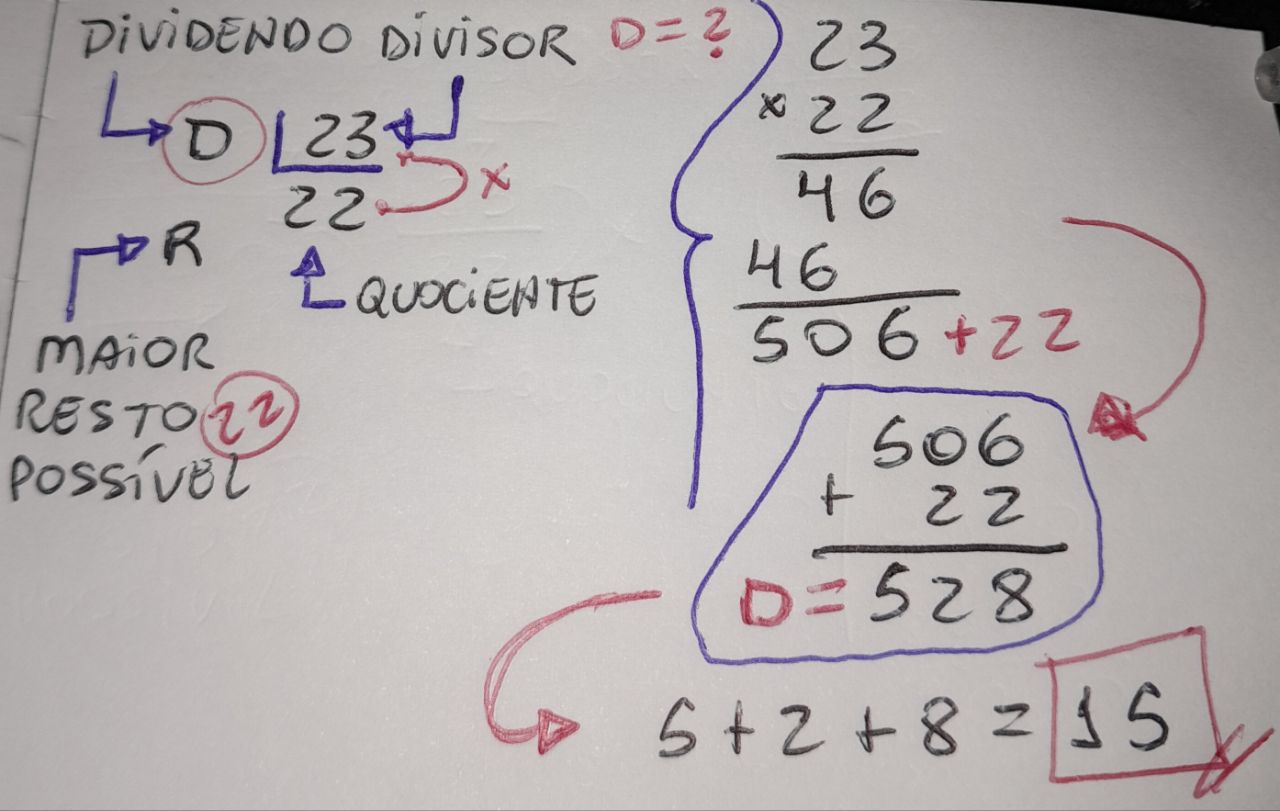 DIVIDENDO DIVISOR D=?
D 23
22 x
R
QUOCIENTE
MAIOR
RESTO 22
POSSÍVEL
23
x 22
46
46
506 +22
506
+ 22
D= 528
5+2+8= 15